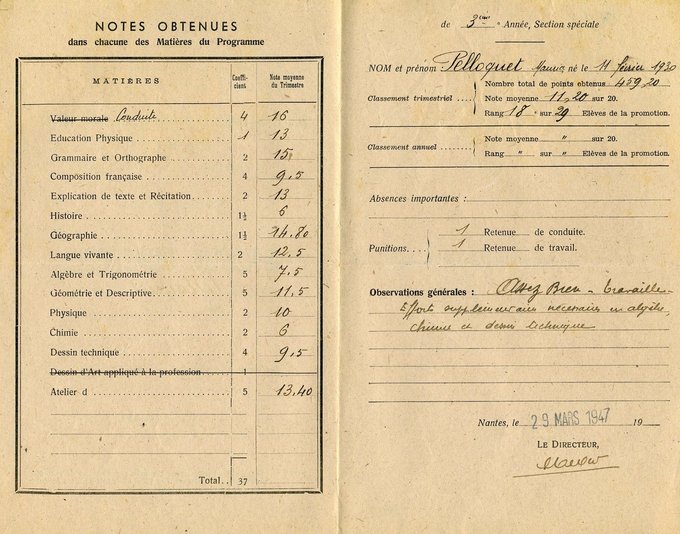 NOTES OBTENUES
dans chacune des Matières du Programme
MATIÈRES Coeffi-cient Note moyenne du Trimestre
Valeur morale Conduite 4 16
Education Physique 1 13
Grammaire et Orthographe 2 15
Composition française 4 9,5
Explication de texte et Récitation 2 13
Histoire 1½ 6
Géographie 1½ 14.80
Langue vivante 2 12,5
Algèbre et Trigonométrie 5 7,5
Géométrie et Descriptive 5 11,5
Physique 2 10
Chimie 2 6
Dessin technique 4 9,5
Dessin d'Art appliqué à la profession 1
Atelier d 5 13,40
Total 37
de 3ème Année, Section spéciale
NOM et prénom Pelloquet Maurice né le 11 février 1930
Nombre total de points obtenus 459,20
Classement trimestriel Note moyenne 11,20 sur 20.
Rang 18 e sur 29 Elèves de la promotion.
Note moyenne " sur 20.
Classement annuel
Rang " sur " Elèves de la promotion.
Absences importantes :
1 Retenue de conduite.
Punitions
1 Retenue de travail.
Observations générales : Assez Bien - travaille -
Efforts supplémentaires nécessaires en algèbre,
chimie et dessin technique
Nantes, le 29 MARS 1947 19
LE DIRECTEUR,